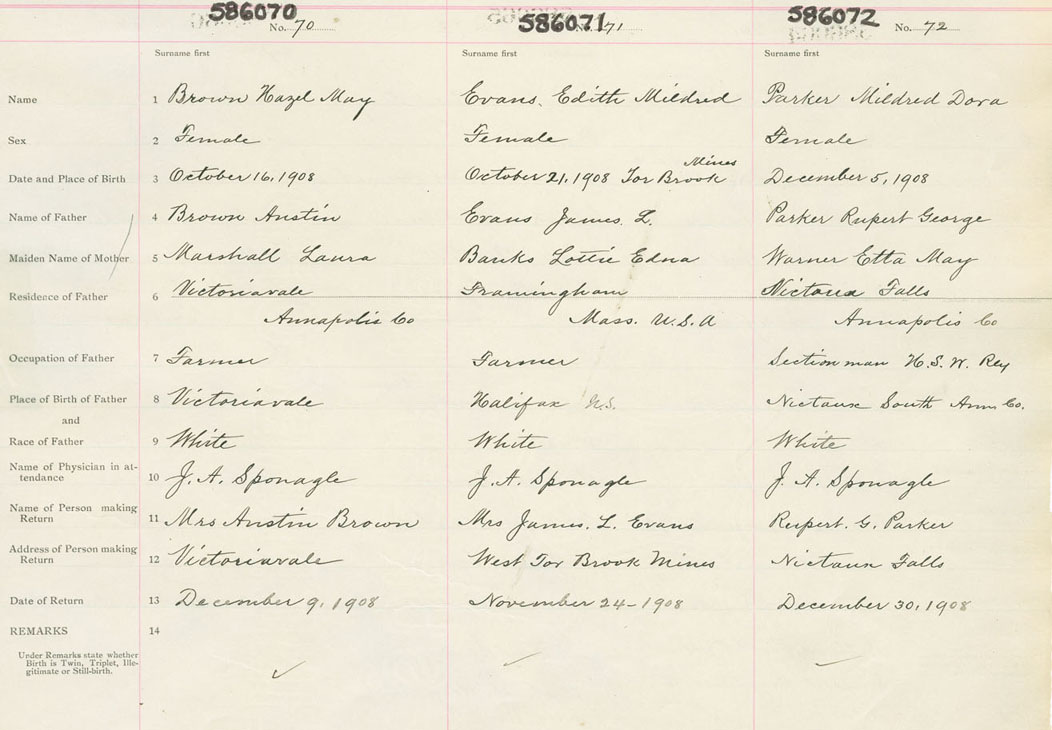 586070 No. 70 586071 No. 71 586072 No. 72
Surname first Surname first Surname first
Name 1 Brown Hazel May Evans. Edith Mildred Parker Mildred Dora
Sex 2 Female Female Female
Mines
Date and Place of Birth 3 October 16, 1908 October 21, 1908 Tor Brook December 5, 1908
Name of Father 4 Brown Austin Evans James. L. Parker Rupert George
Maiden Name of Mother 5 Marshall Laura Banks Lottie Edna Warner Etta May
Residence of Father 6 Victoriavale Framingham Nictaux Falls
Annapolis Co Mass. U.S.A Annapolis Co
Occupation of Father 7 Farmer Farmer Section man H. S. W. Rey
Place of Birth of Father 8 Victoriavale Halifax N.S. Nictaux South Ann Co.
and
Race of Father 9 White White White
Name of Physician in at-
tendance 10 J. A. Sponagle J. A. Sponagle J. A. Sponagle
Name of Person making
Return 11 Mrs Austin Brown Mrs James. L. Evans Rupert. G. Parker
Address of Person making
Return 12 Victoriavale West Tor Brook Mines Nictaux Falls
Date of Return 13 December 9, 1908 November 24-1908 December 30, 1908
REMARKS 14
Under Remarks state whether
Birth is Twin, Triplet, Ille-
gitimate or Still-birth.